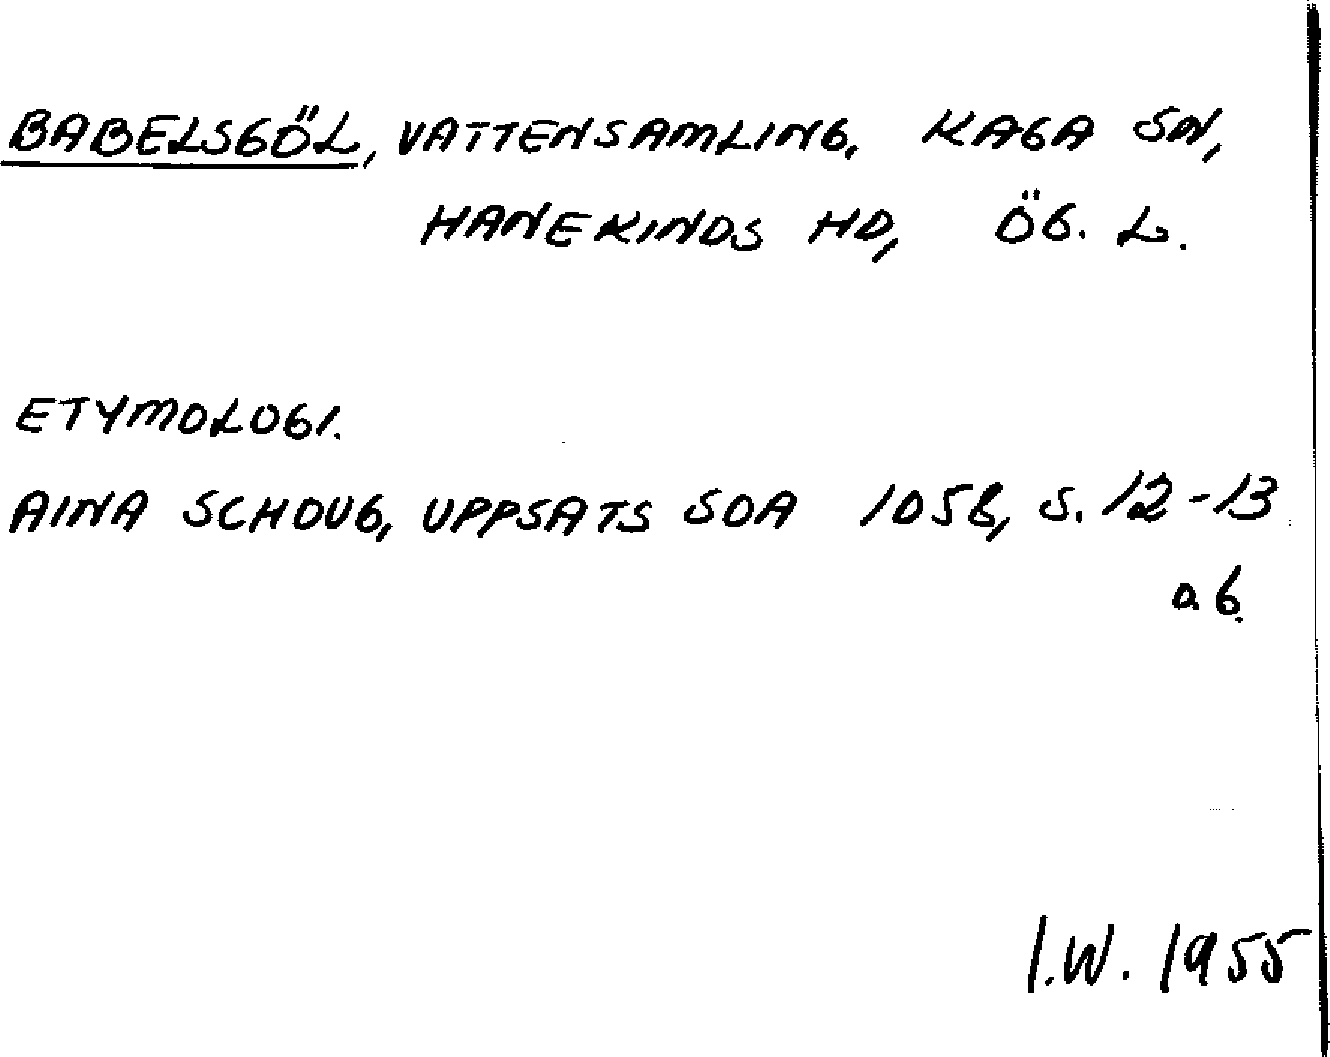 BABELSGÖL, VATTENSAMLING, KAGA SN,
HANEKINDS HD, ÖG. L.
ETYMOLOGI.
AINA SCHOUG, UPPSATS SOA 1058, S. 12-13
a6.
I.W. 1955